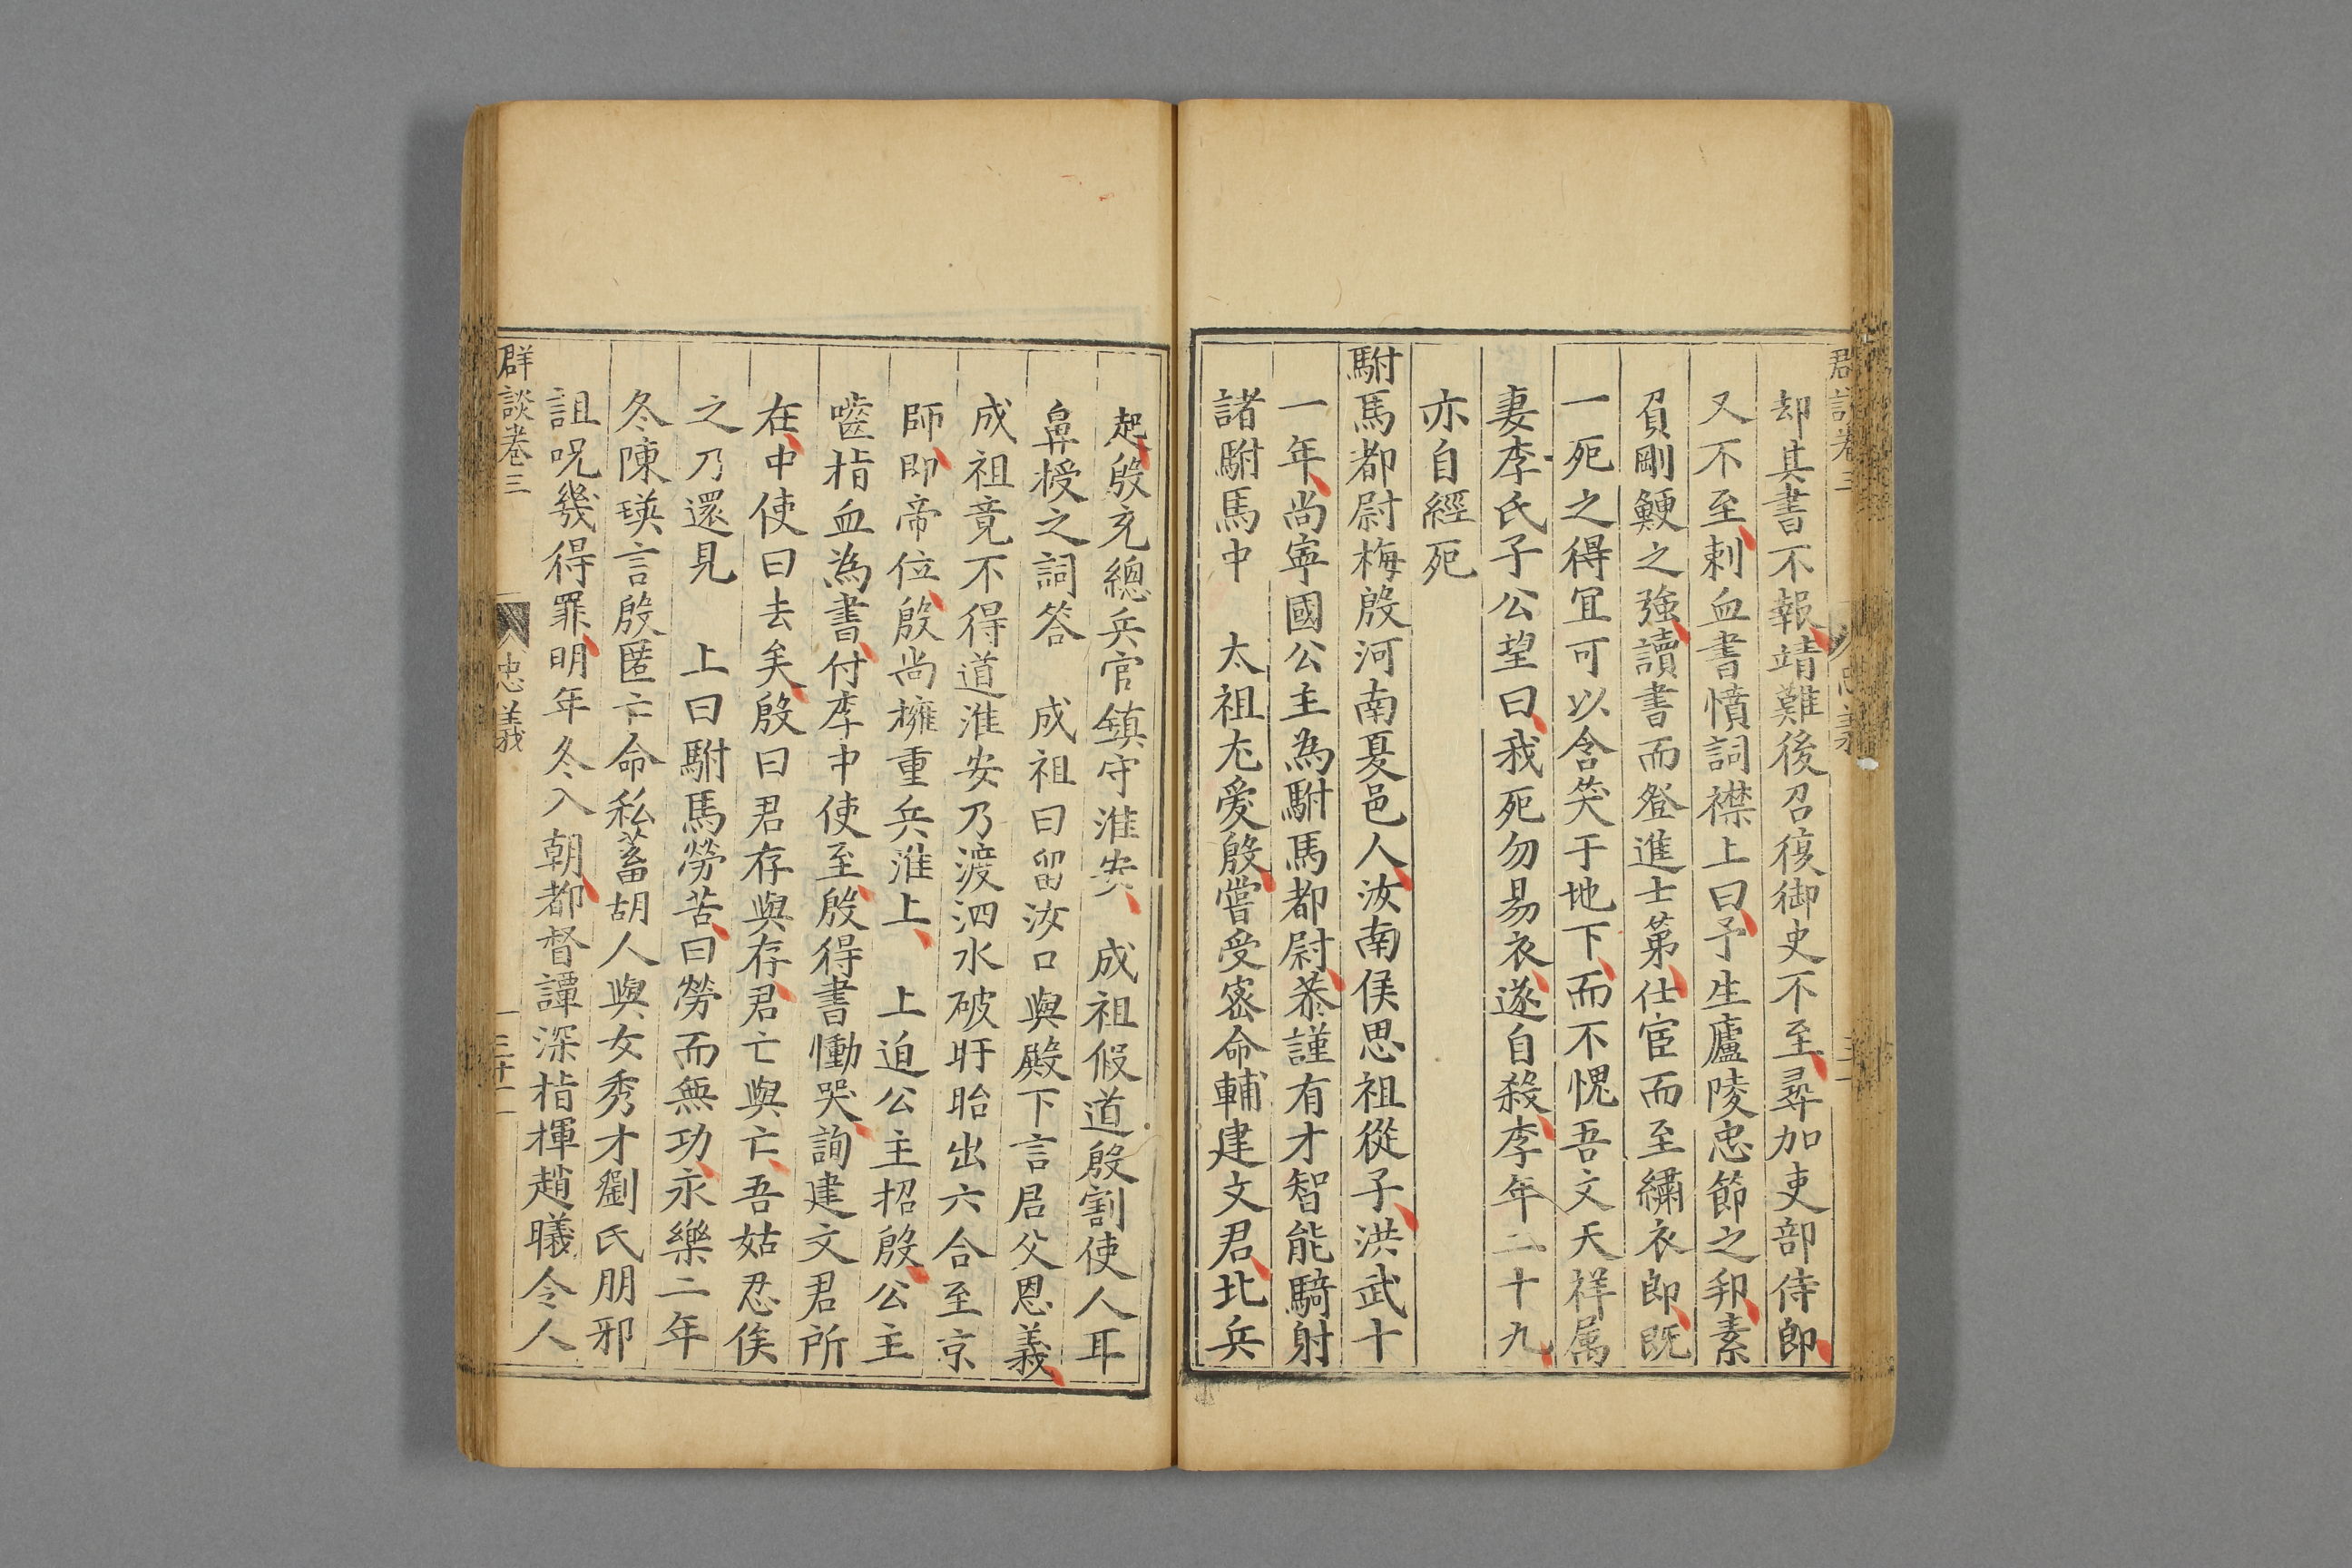 却其書不報靖難後召復御史不至尋加吏部侍郎
又不至刺血書憤詞襟上曰予生廬陵忠節之邦素
負剛鯁之強讀書而登進士第仕宦而至繡衣郎既
一死之得冝可以含笑于地下而不愧吾文天祥属
妻李氏子公望曰我死勿易衣遂自殺李年二十九
亦自經死
駙馬都尉梅殷河南夏邑人汝南侯思祖從子洪武十
一年尚寧國公主為駙馬都尉恭謹有才智能騎射
諸駙馬中　太祖尤愛殷嘗受密命輔建文君北兵
起殷充總兵官鎮守淮安　成祖假道殷割使人耳
鼻授之詞答　成祖曰留汝口與殿下言君父恩義
成祖竟不得道淮安乃渡泗水破盱眙出六合至京
師即帝位殷尚擁重兵淮上　上迫公主招殷公主
嚙指血為書付李中使至殷得書慟哭詢建文君所
在中使曰去矣殷曰君存與存君亡與亡吾姑忍俟
之乃還見　上曰駙馬勞苦曰勞而無功永樂二年
冬陳瑛言殷匿亡命私蓄胡人與女秀才劉氏朋邪
詛呪幾得罪明年冬入朝都督譚深指揮趙曦令人
群談卷三　忠義　三十一